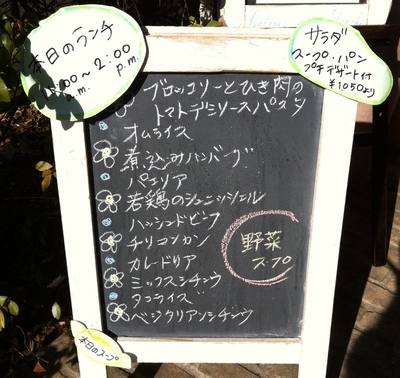 本日のランチ
:00～2:00
a.m.
p.m.
サラダ
スープ・パン
プチデザート付
¥1050より
ブロッコリーとひき肉の
トマトデミソースパスタ
オムライス
煮込みハンバーグ
パエリア
若鶏のシュニッツェル
ハッシュドビーフ
チリコンカン
カレードリア
ミックスシチュウ
タコライス
ベジタリアンシチュウ
野菜
スープ
本日のスープ